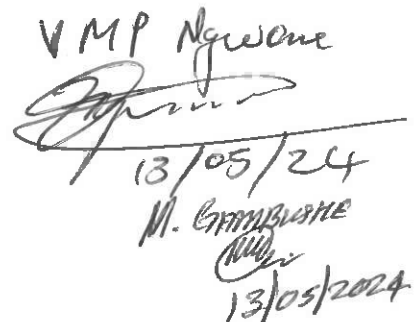 VMP Ngwane
13/05/24
M. GAMBUSHE
13/05/2024